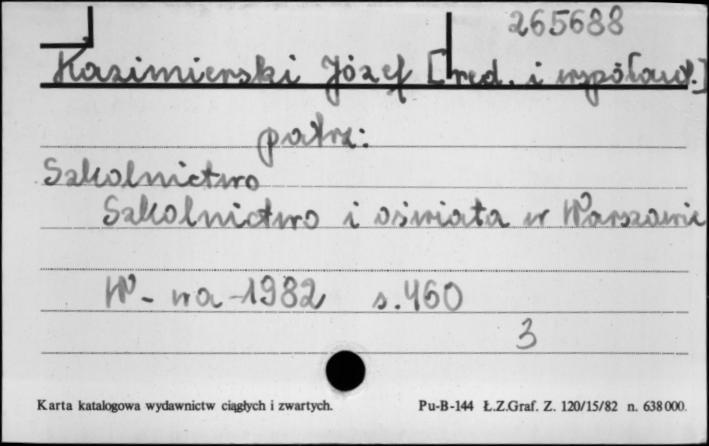 265688
Kazimierski Józef [red. i współaut.]
patrz:
Szkolnictwo
Szkolnictwo i oświata w Warszawie
W-wa 1982 s. 460
3
Karta katalogowa wydawnictw ciągłych i zwartych. Pu-B-144 Ł.Z.Graf. Z. 120/15/82 n. 638000.